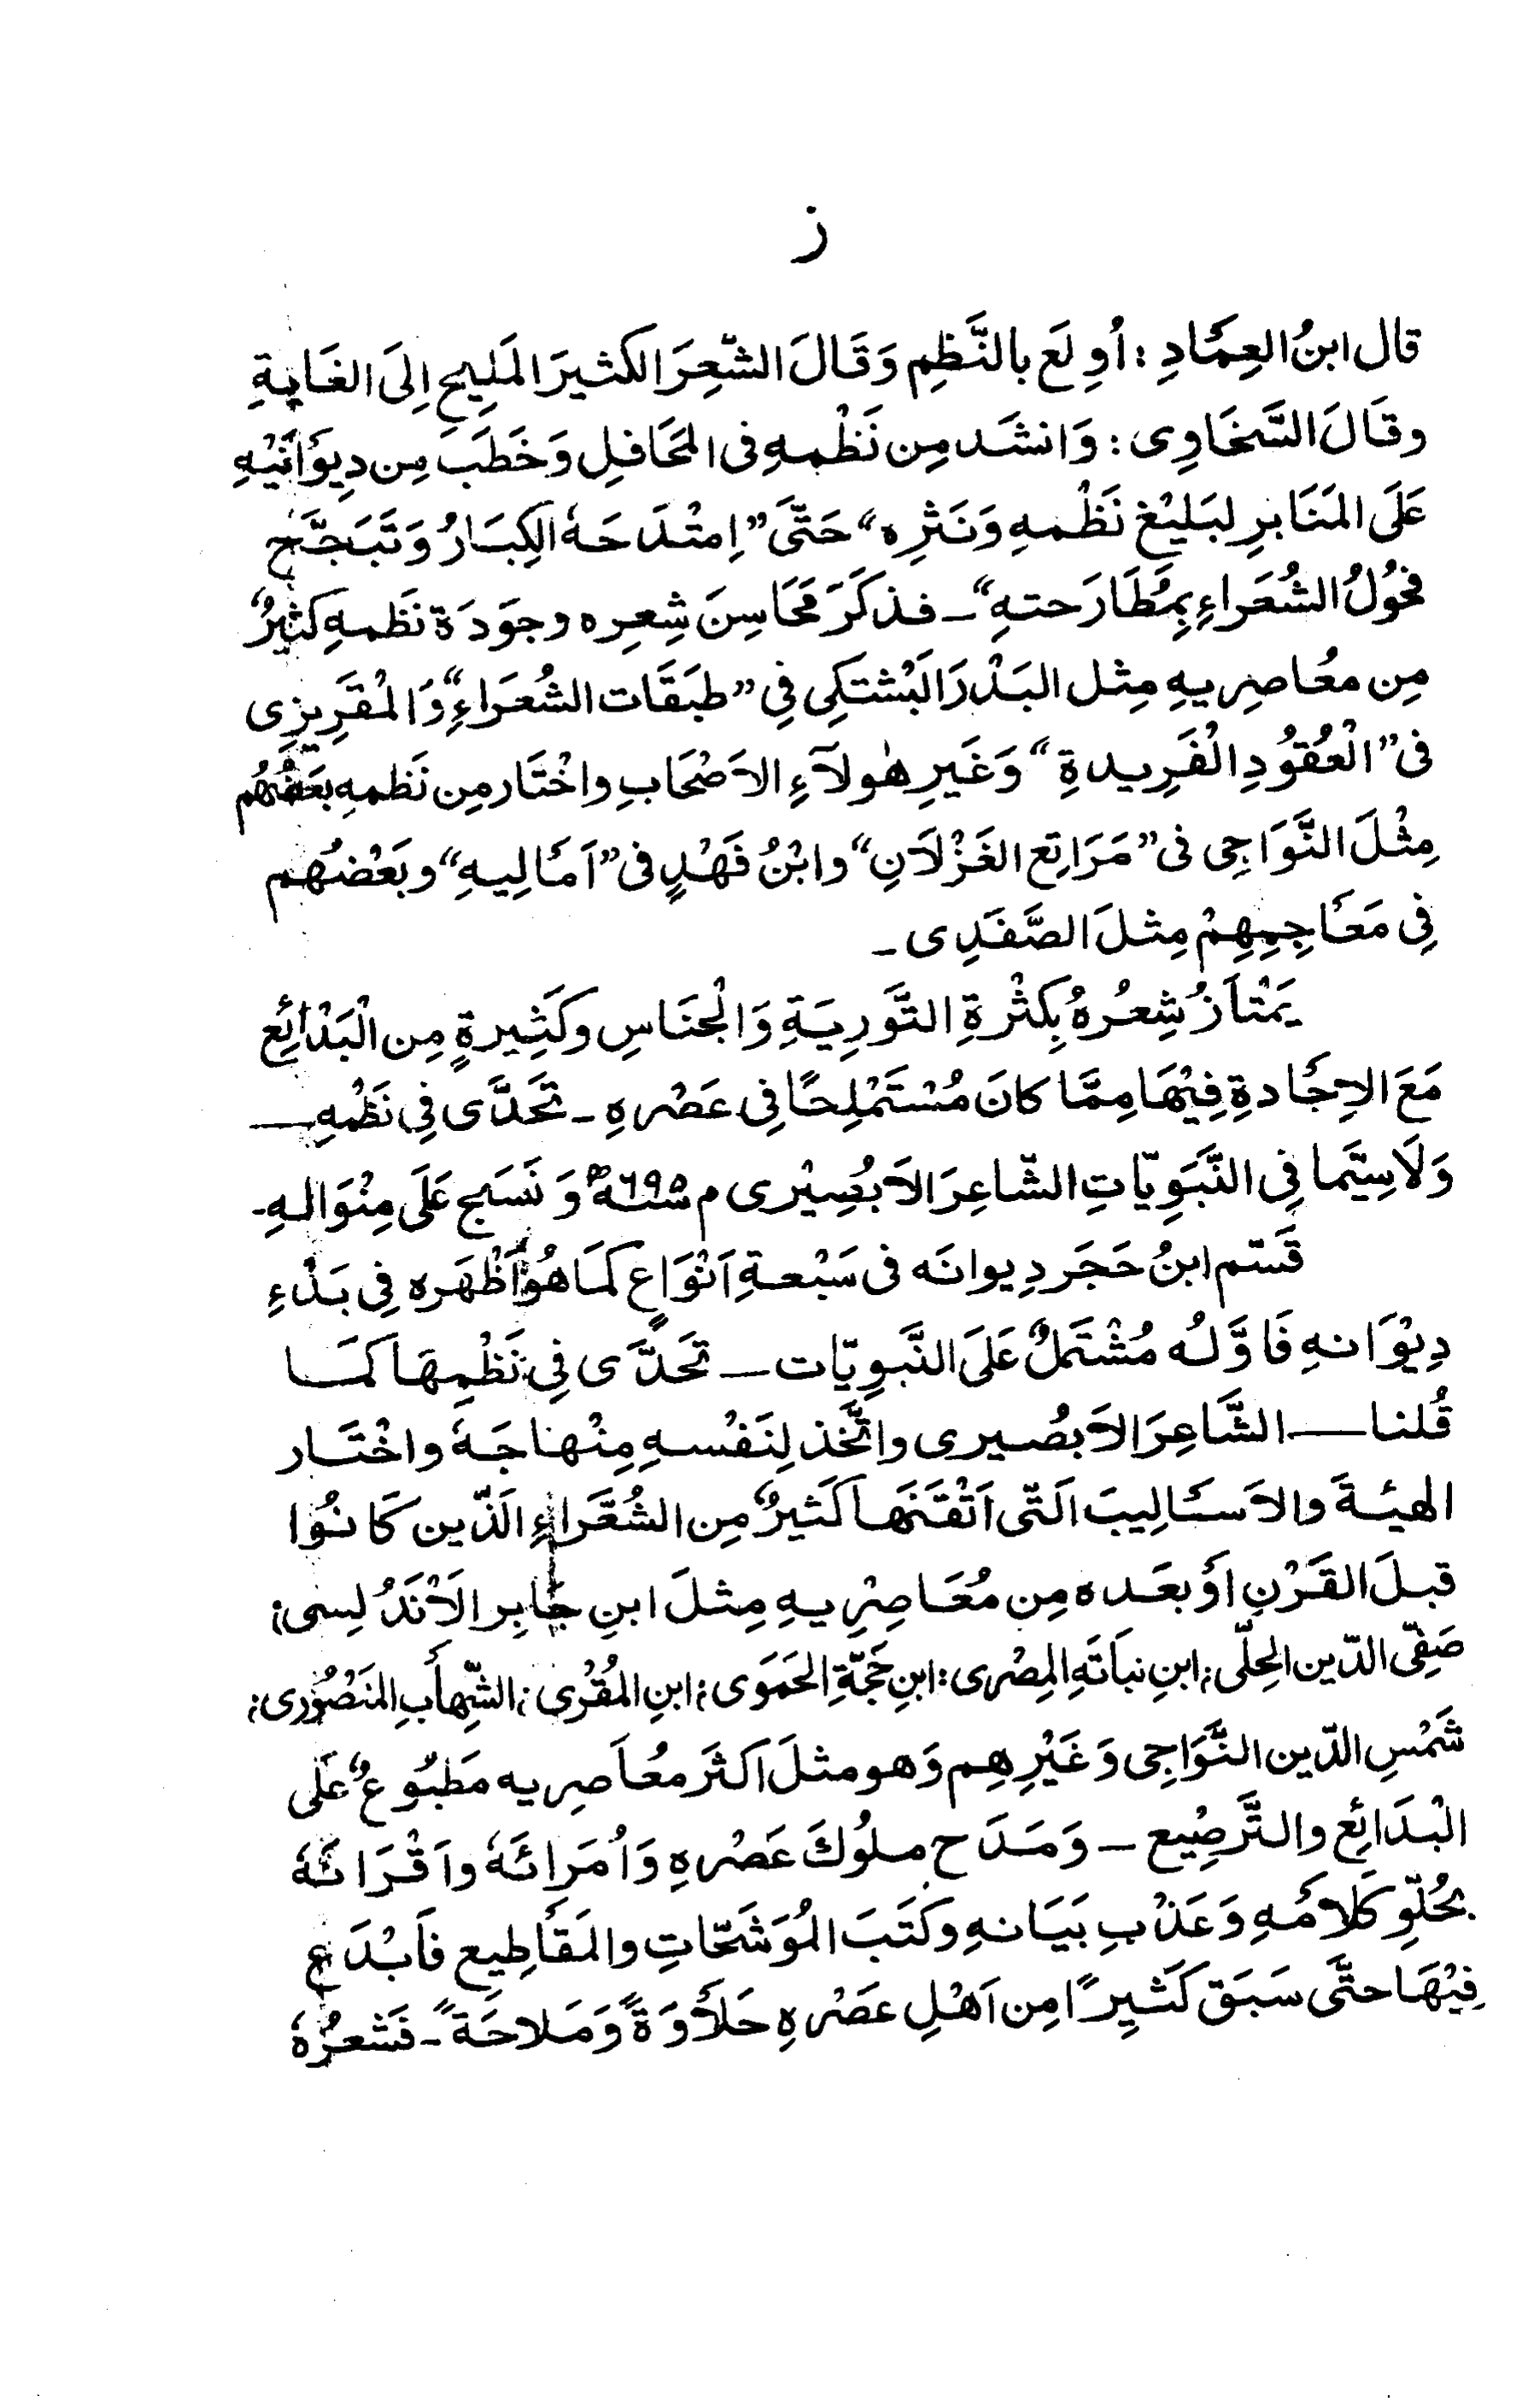 ز
قال ابنُ العِمَادِ : اُوِلَع بالنَّظِمِ وَقَالَ الشّعِرَ الكثيرَ المَلِيح اِلىَ الغَايةِ
وقَالَ السَّخَاوِى : وَانشَد مِن نَظْمهِ فى المَحَافلِ وَخَطَبَ مِن دِيوَانَيْهِ
عَلَى المَنَابرِ لبَلِيْغ نَظْمهِ وَنَثرِه“ حَتّىَ ”اِمتْدَحَهُ الكِبَارُ وَتَبَجَّح
فحُولُ الشُعَراءِ بِمُطَارَحتهِ“ ـ فذكَرَ مَحَاسِنَ شِعِره وجوَدَة نَظمهِ كثيرٌ
مِن معُاصِريهِ مِثل البَدْرَ البَشتكِى فِي ”طبَقَات الشُعَراءِ“ وَالمْقَرِيزِى
فى ”الْعُقوُدِ الْفَرِيدةِ“ وَغَيرِ هٰولآءِ الاَصْحَابِ واخْتَار مِن نَظمهِ بعَضُهُم
مِثْلَ النَّوَاجِى فى ”مَرَاتِع الغَزْلاَنِ“ وابْنُ فَهْدٍ فى ”اَمَالِيهِ“ وبَعْضُهم
فِى مَعَاجِمِهِمْ مِثلَ الصَّفَدِى ـ
يَمْتاَزُ شِعرُهُ بِكثْرةِ التَّورِيَةِ وَالْجنَاسِ وكَثِيرةٍ مِن الْبَدْائِع
مَعَ الاِجَادةِ فِيْهَا مِمَّا كانَ مُسْتَمْلِحًا فِى عَصْرهِ ـ تَحَدَّى فِي نَظْمهِ —
وَلَا سِيَّما فِى النَّبَوِيّاتِ الشّاعِرَ الاَبُصِيْرى م سنة ٦٩٥ھ وَنَسَج عَلَى مِنْوَالهِ ـ
قَسّم ابنُ حَجَر دِيوانَه فى سَبْعةِ اَنْوَاعٍ كَمَا هُوَ اَظْهَره فِى بَدْءِ
دِيْوَانهِ فَاوَّلهُ مُشْتَمَلٌ عَلَى النَّبوِيّات — تَحَدَّى فِى نَظْمِهَا كَمَا
قُلنا — الشَّاعِرَ الاَبُصيرى واتَّخذ لِنَفْسهِ مِنْهاجَهُ واخْتَار
الهيئةَ والاَسَالِيبَ الَتّى اَتْقَنَهَا كَثيرٌ مِن الشُعَّراءِ الَذّين كَانُوا
قبلَ القَرْنِ اَوْ بعَده مِن مُعَاصِرِيهِ مِثلَ ابنِ جَابِر الاَنْدَلُسى؛
صَفِىّ الدّين الحِلّى؛ ابنِ نباتَهِ المِصْرى؛ ابنِ حَجّةِ الحَمَوى؛ ابنِ المُقْرى؛ الشِّهاَبِ المَنصُوْرى؛
شَمْسِ الدّين النَّوَاجِى وَغَيْرِهِم وَهو مثلَ اكثَر معُاَصِريه مَطبُوعٌ عَلَى
الْبدَائِع والتَّرصِيع — وَمَدَح ملوُكَ عَصْرهِ وَاُمَرائَهُ واَقْرَانَهُ
بحُلّوِ كَلاَمهِ وَعَذْبِ بَيَانهِ وكَتَبَ المُوَشَحّاتِ والمَقَاطِيع فاَبْدَع
فِيْهَا حتَّى سَبَق كَثِيرًا مِن اَهْلِ عَصْرهِ حَلاَوَةً وَمَلاحَةً ـ فَشعرُهُ